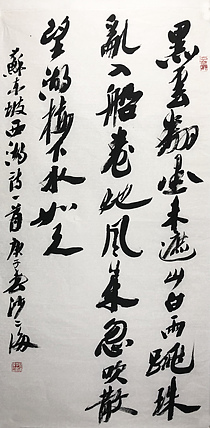 黑雲翻墨未遮山白雨跳珠
亂入船卷地風来忽吹散
望湖樓下水如天
蘇東坡西湖詩一首庚子